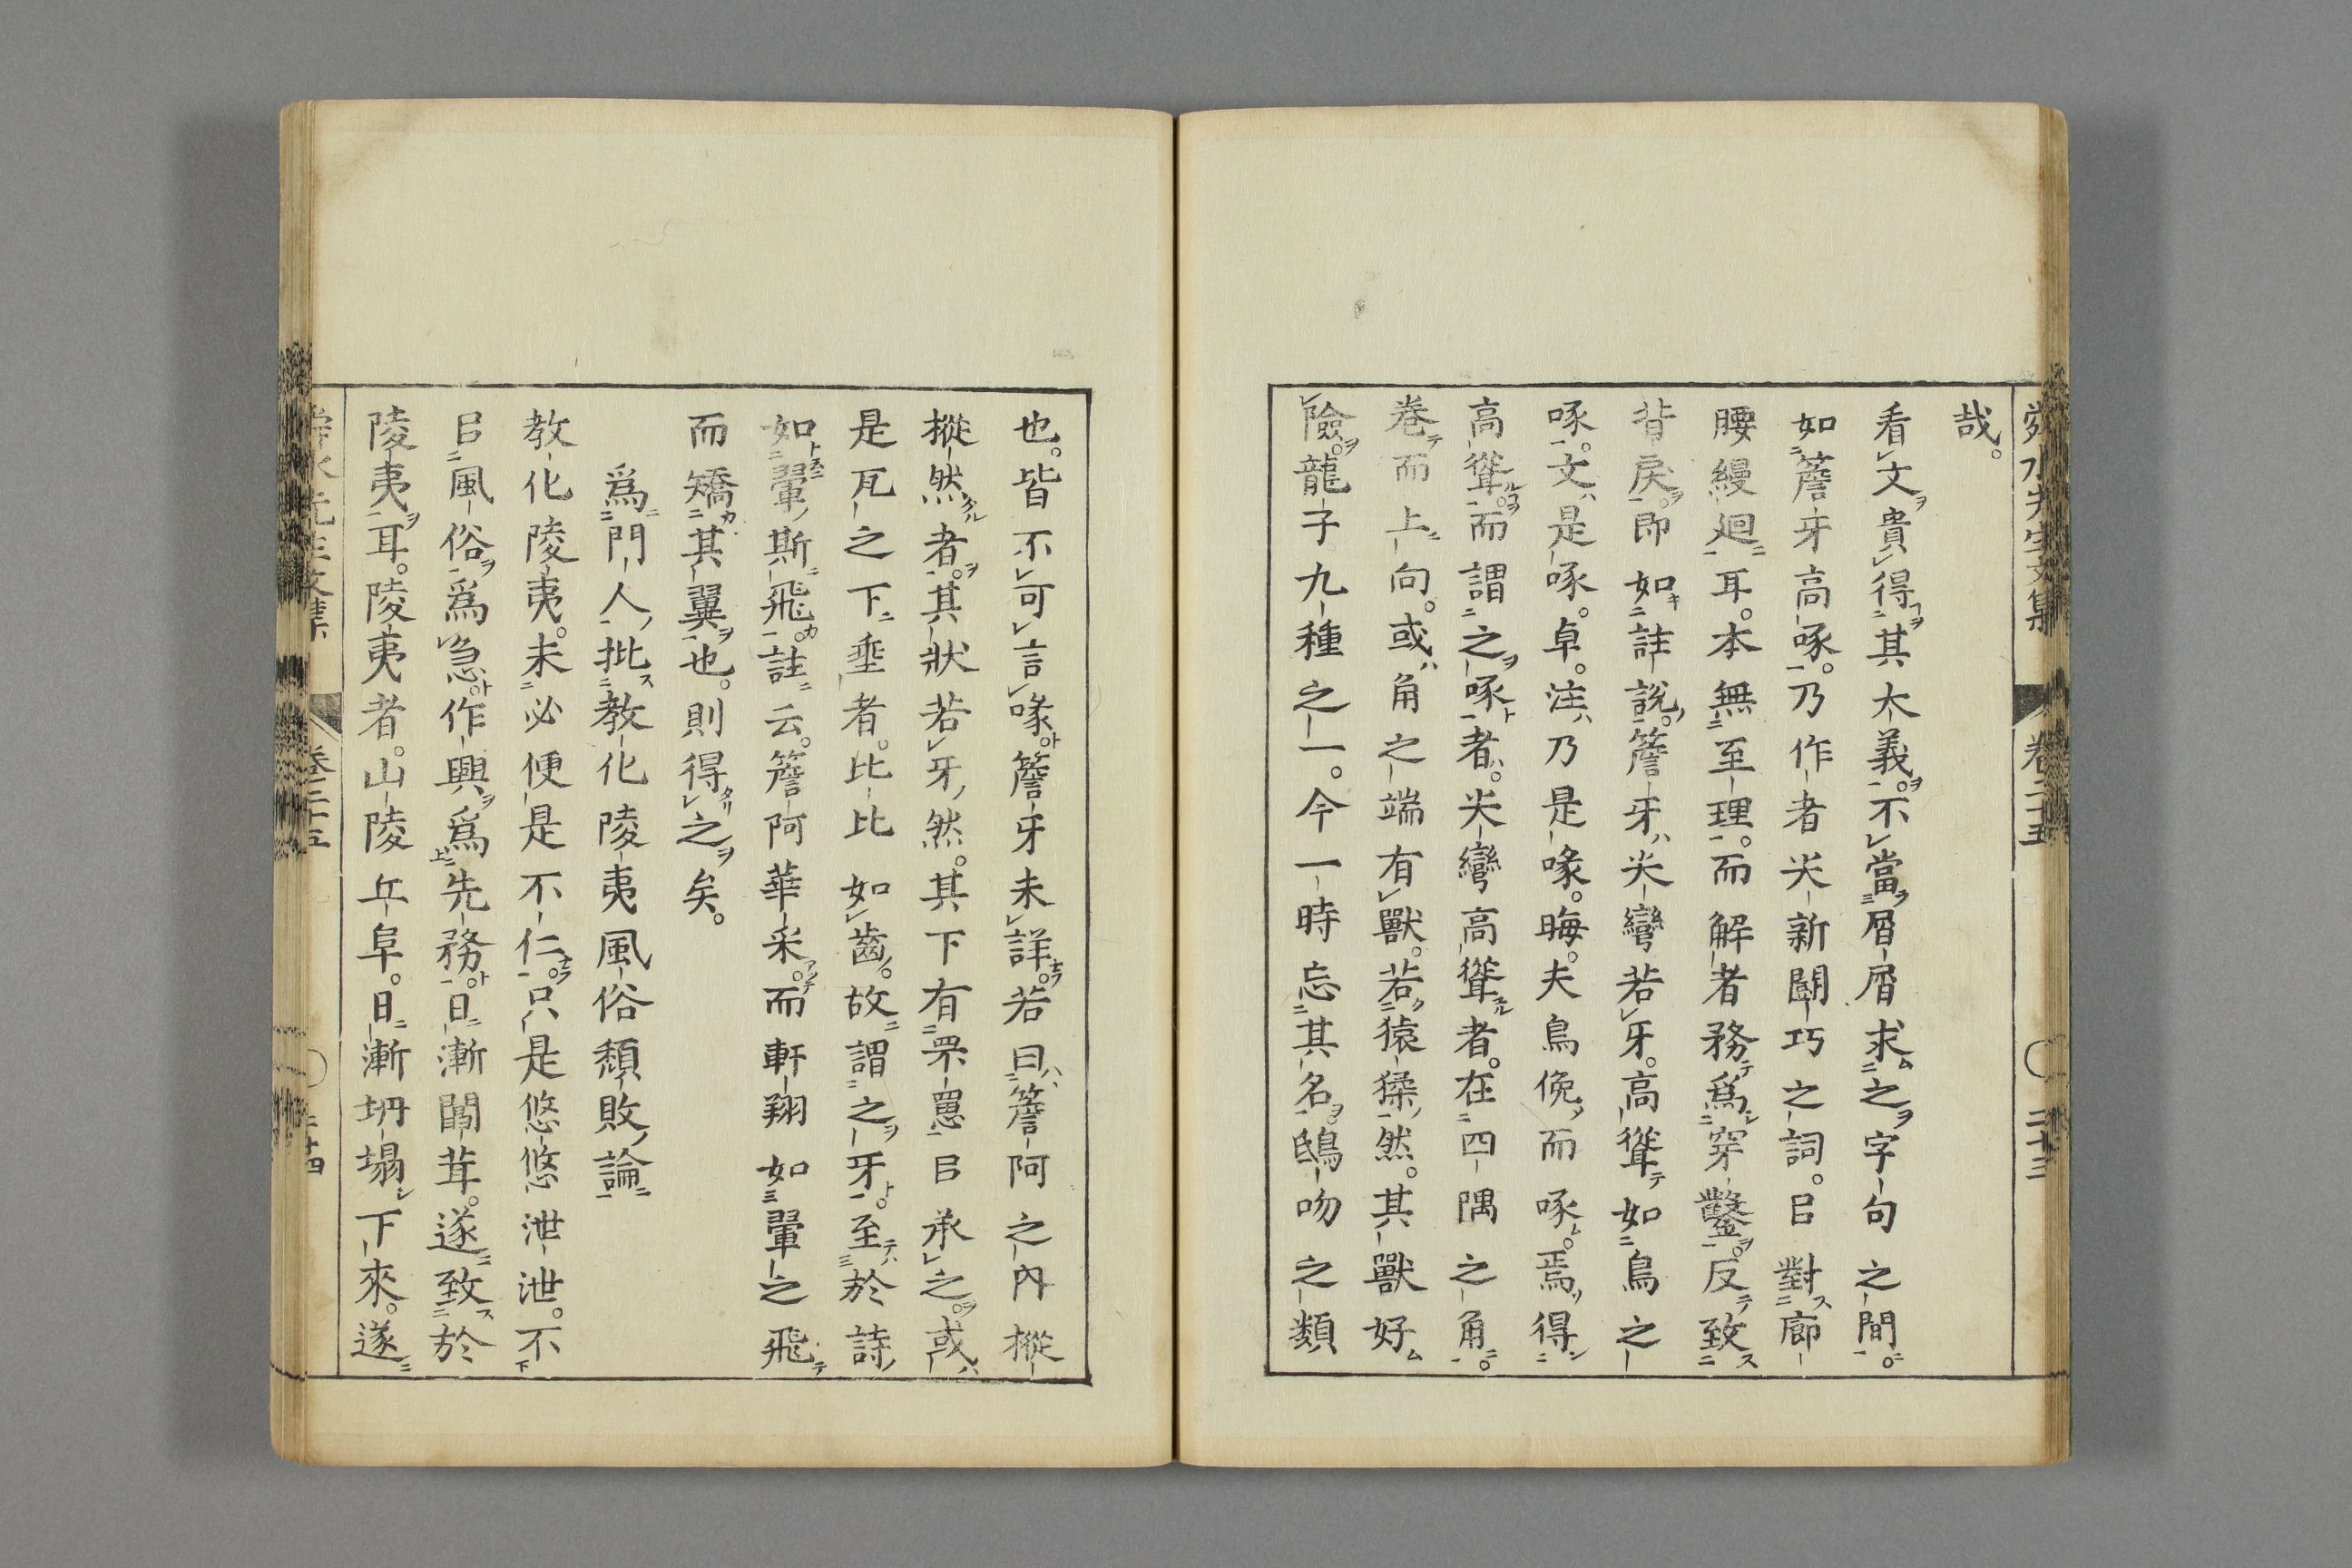 舜水先生文集 卷二十五 二十三
哉。
看文貴得其大義。不當屑屑求之字句之間。
如簷牙高啄。乃作者尖新鬭巧之詞。㠯對廊
腰縵廻耳。本無至理。而解者務爲穿鑿。反致
背戾。即如註說。簷牙尖彎若牙。高聳如鳥之
啄。文是啄。卓。注乃是喙。晦。夫鳥俛而啄。焉得
高聳。而謂之啄者。尖彎高聳者。在四隅之角。
卷而上向。或角之端有獸。若猿猱然。其獸好
險。龍子九種之一。今一時忘其名。鴟吻之類
也。皆不可言喙。簷牙未詳。若曰簷阿之內摐
摐然者。其狀若牙然。其下有罘罳㠯承之。或
是瓦之下垂者。比比如齒。故謂之牙。至於詩
如翬斯飛。註云。簷阿華采。而軒翔如翬之飛
而矯其翼也。則得之矣。
爲門人批教化陵夷風俗頽敗論
教化陵夷。未必便是不仁。只是悠悠泄泄。不
㠯風俗爲急。作興爲先務。日漸闒茸。遂致於
陵夷耳。陵夷者。山陵丘阜。日漸坍塌下來。遂
舜水先生文集 卷二十五 二十四